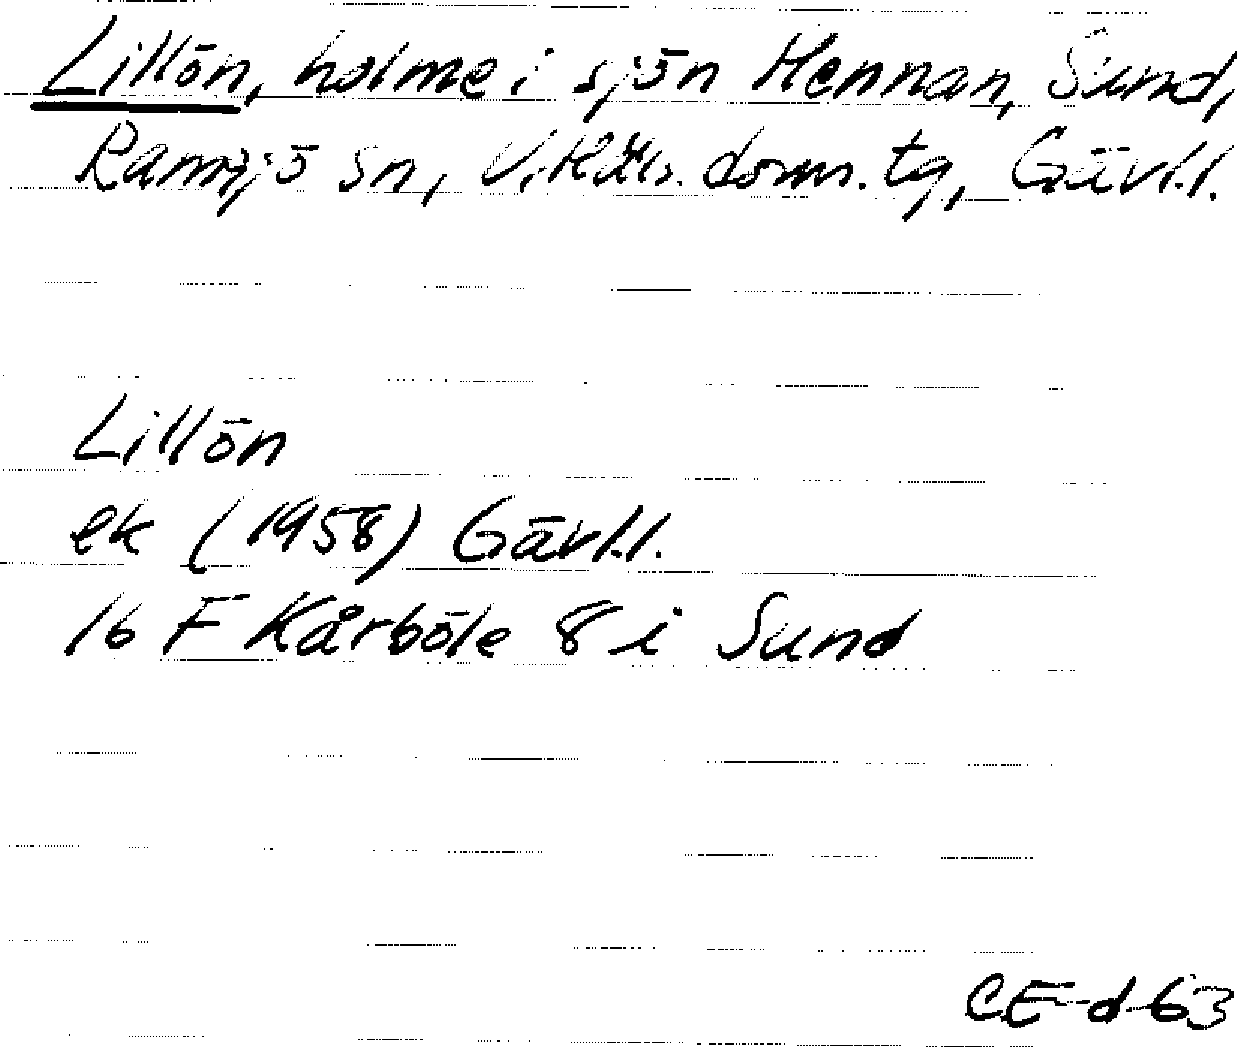 Lillön, holme i sjön Hennan, Sund,
Ramsjö sn, V. Häls. doms. tg, Gävl.l.
Lillön
ek (1958) Gävl.l.
16 F Kårböle 8 i Sund
CE-d-63